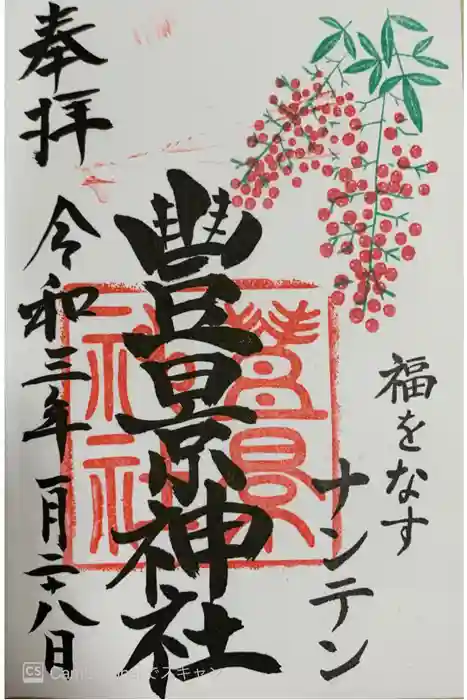 福をなす
ナンテン
豊景神社
奉拝
令和三年一月二十八日
豊景
神社
CS CamScannerでスキャン